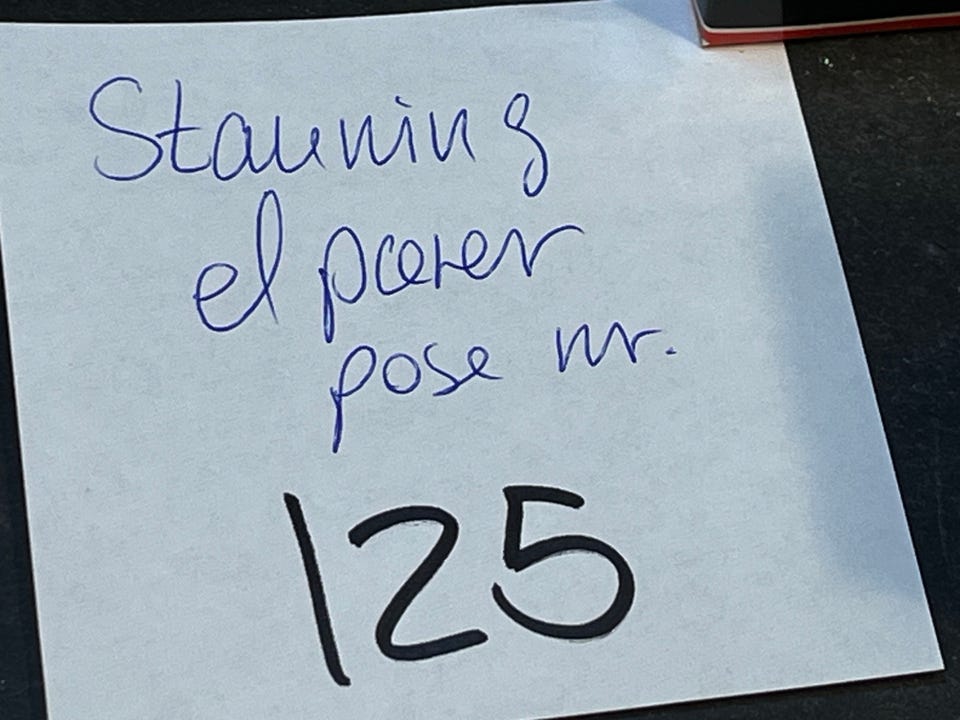 Stauning
el parer
pose nr.
125